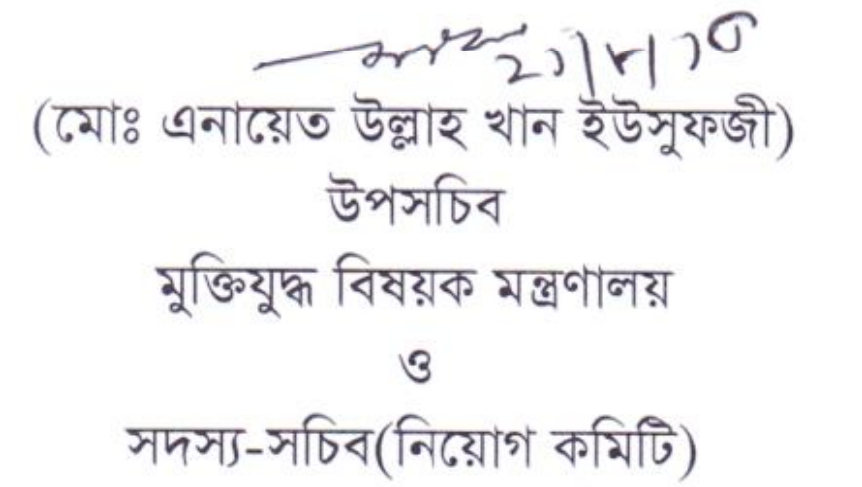 (মোঃ এনায়েত উল্লাহ খান ইউসুফজী)
উপসচিব
মুক্তিযুদ্ধ বিষয়ক মন্ত্রণালয়
ও
সদস্য-সচিব(নিয়োগ কমিটি)